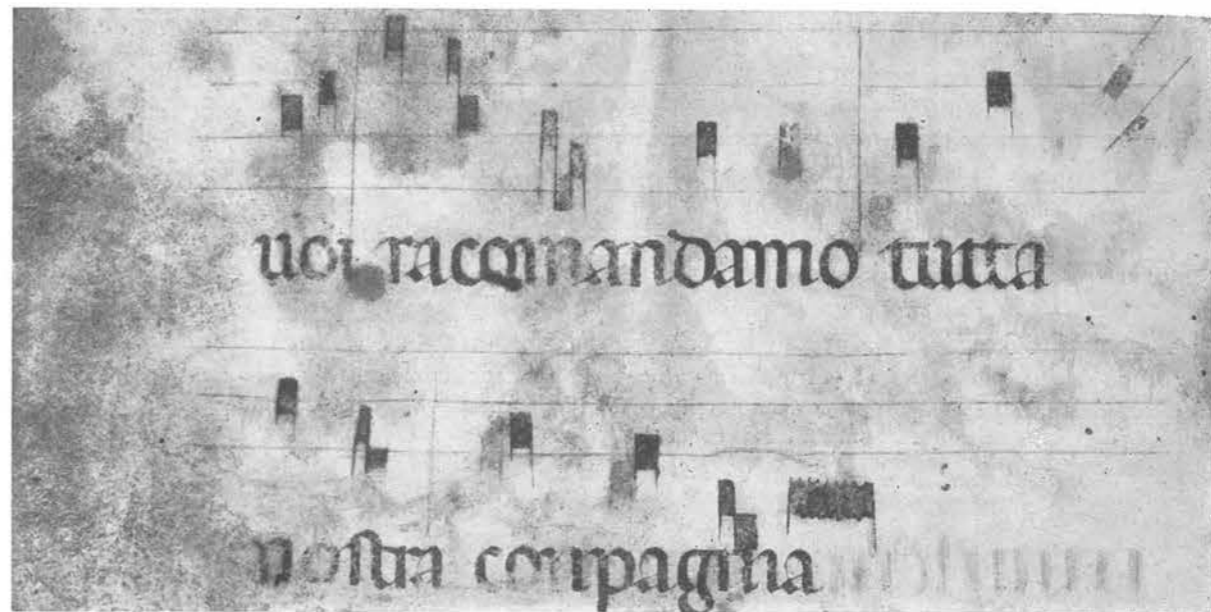 uoi racomandamo tutta
nostra conpagnia